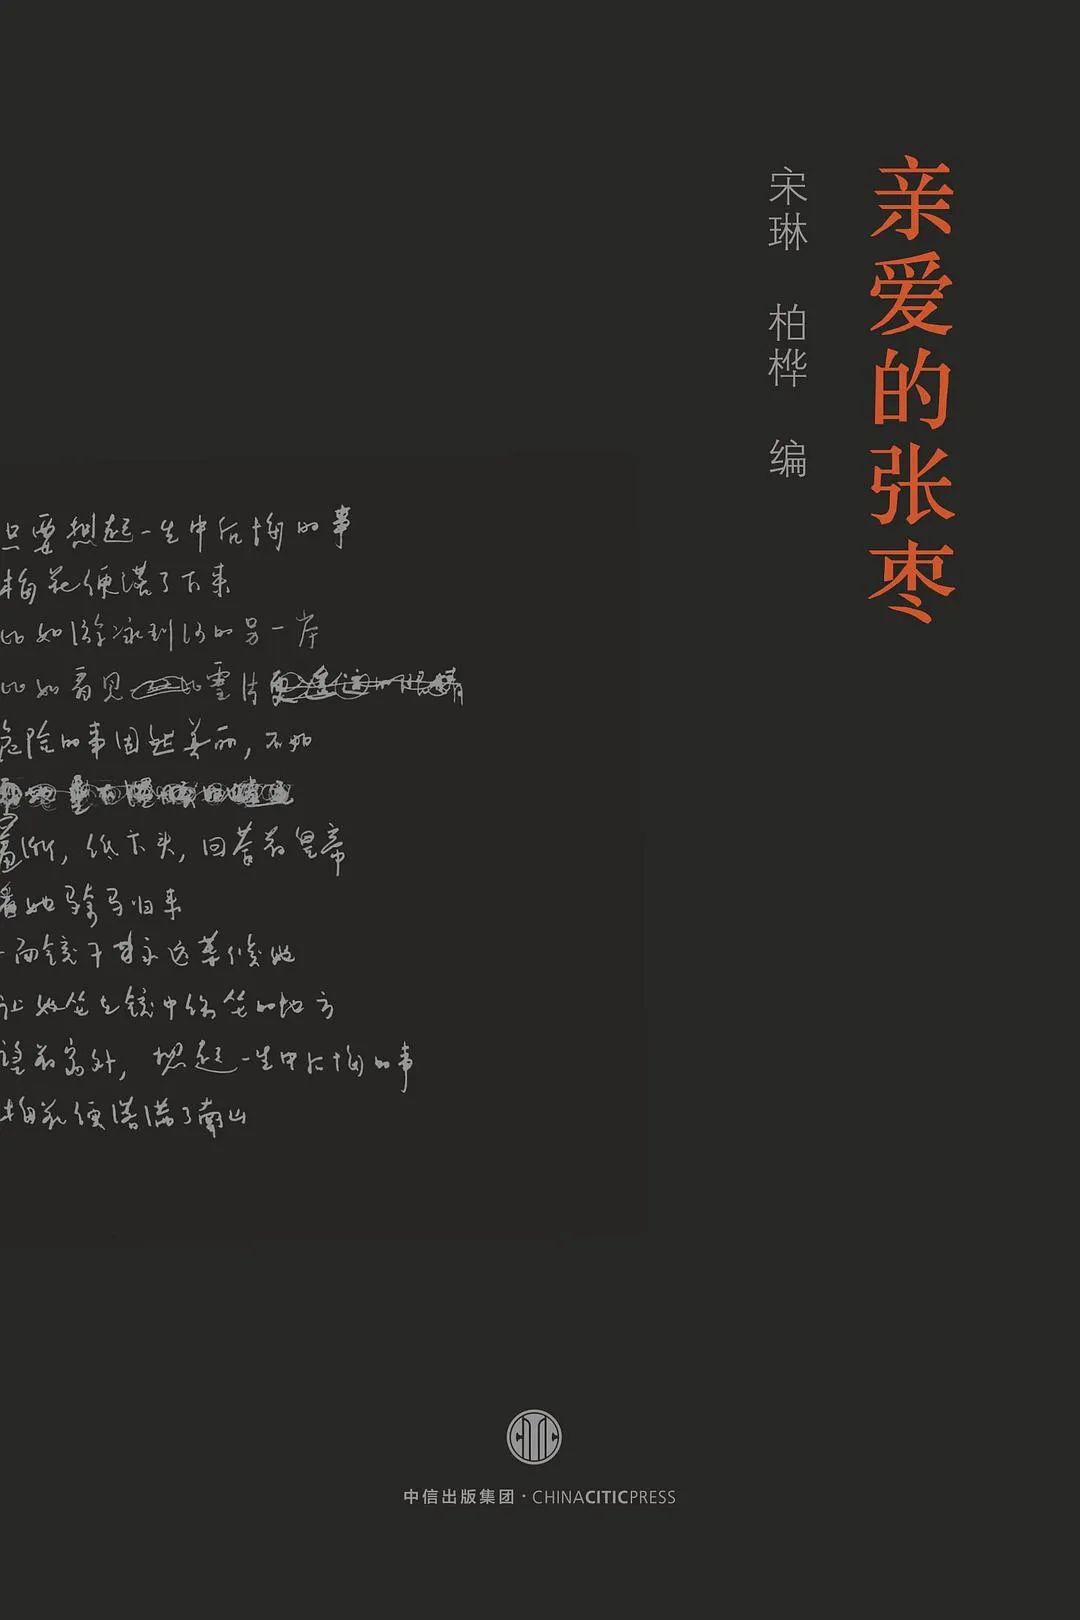 亲爱的张枣
宋琳 柏桦 编
只要想起一生中后悔的事
梅花便落了下来
比如游泳到河的另一岸
比如看见比雪片
危险的事固然美丽，不如
羞惭，低下头，回答着皇帝
看她骑马归来
一面镜子永远等候她
让她坐在镜中你坐的地方
望着窗外，想起一生中后悔的事
梅花便落满了南山
中信出版集团·CHINACITICPRESS